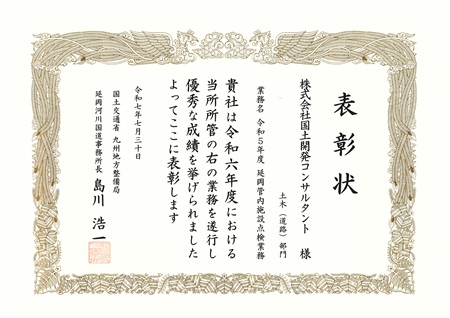 表彰状
株式会社国土開発コンサルタント 様
土木（道路）部門
業務名 令和５年度 延岡管内施設点検業務
貴社は令和六年度における
当所所管の右の業務を遂行し
優秀な成績を挙げられました
よってここに表彰します
令和七年七月三十日
国土交通省 九州地方整備局
延岡河川国道事務所長 島川 浩一